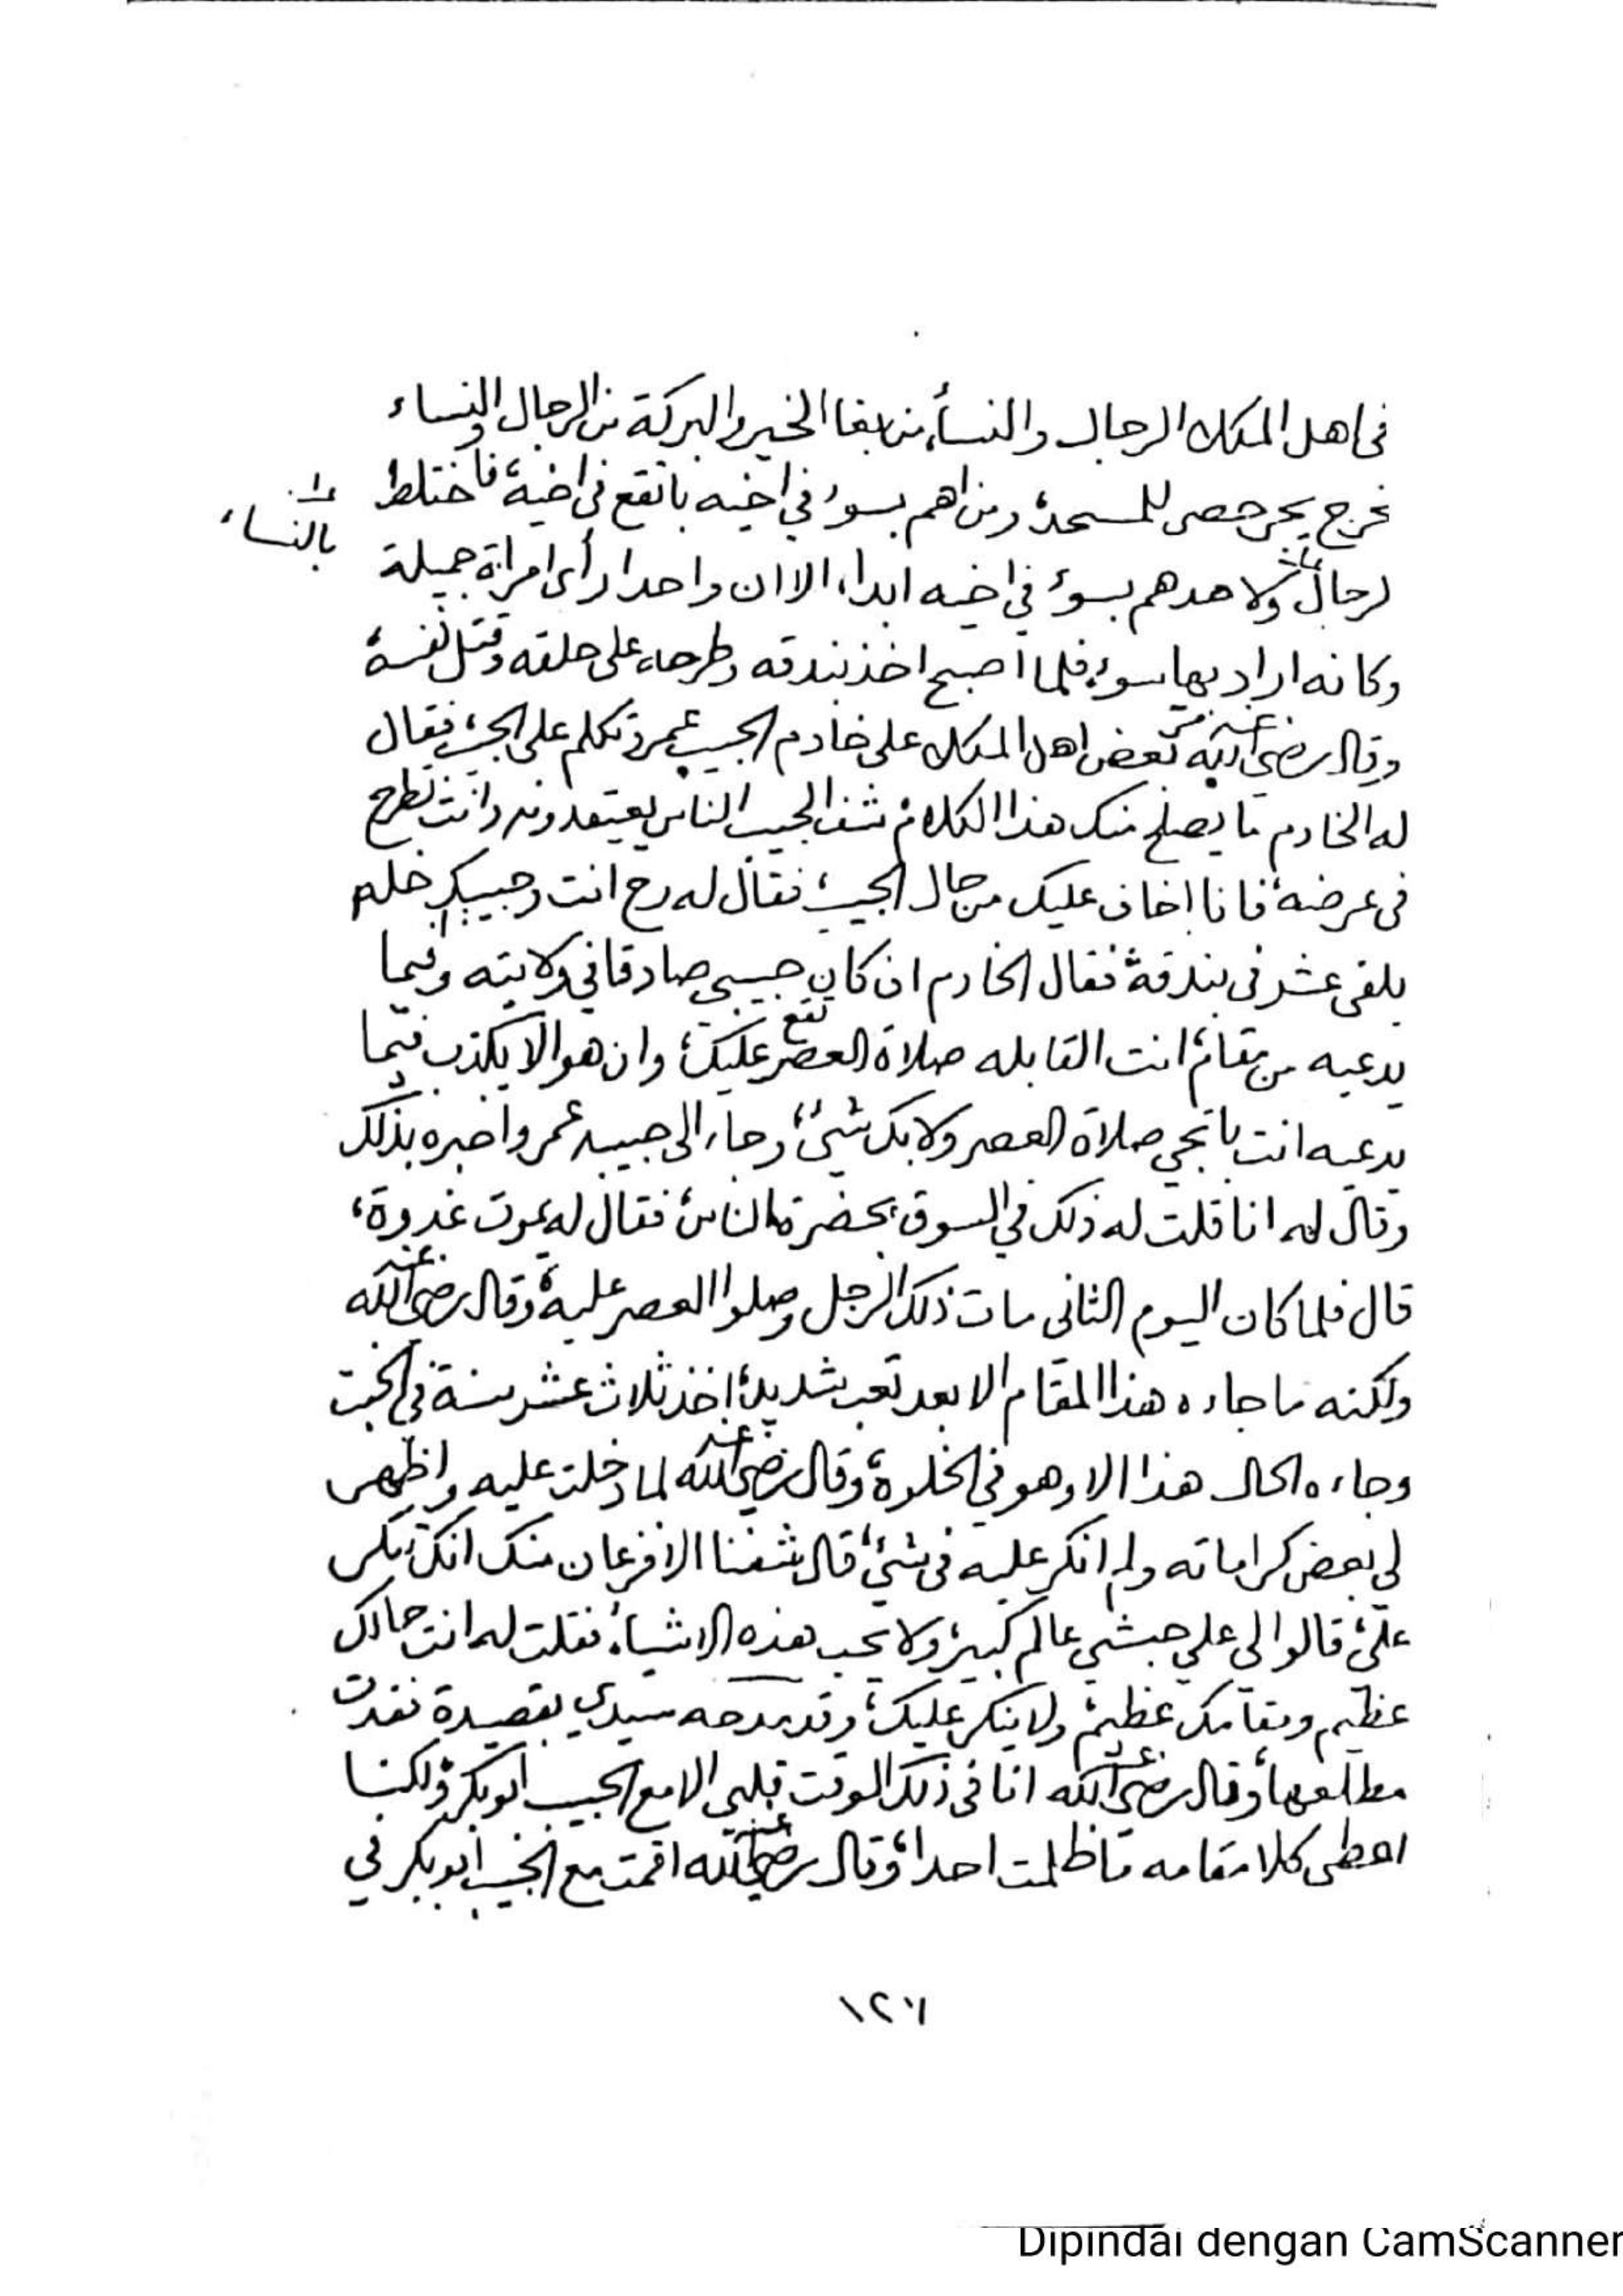 في اهل المكان الرجال والنساء، من بغا الخير والبركة من الرجال والنساء
خرج يجر حصى للمسجد، ومن اهم بسوء في اخيه باتقع في اخيه، فاختلط
بالنساء،
الرجال ولا حد هم بسوء في اخيه ابدا، الا ان واحدا رأى امرأة جميلة
وكانه اراد بها سوء، فلما اصبح اخذ بندقه وطرحه على حلقه وقتل نفسه،
وقال رضي الله عنه مر بعض اهل المكان على خادم الحبيب عمر وتكلم على الحبيب، فقال
له الخادم ما يصلح منك هذا الكلام، شف الحبيب الناس يعتقدونه وانت تطرح
في عرضه، فانا اخاف عليك من حال الحبيب، فقال له رح انت وحبيبك خله
يلقي عشر في بندقة، فقال الخادم ان كان حبيبي صادقا في ولايته وفيما
يدعيه من مقام، انت القابله صلاة العصر تقع عليك، وان هو الا يكذب فيما
يدعيه انت باتجي صلاة العصر ولا بك شيء، وجاء الى حبيبه عمر واخبره بذلك
وقال له انا قلت له ذلك في السوق بحضرة الناس، فقال له يموت غدوة،
قال فلما كان اليوم الثاني مات ذلك الرجل وصلوا العصر عليه، وقال رضي الله عنه
ولكنه ما جاءه هذا المقام الا بعد تعب شديد، اخذ ثلاث عشر سنة في الخبت
وجاءه الحال هذا الا وهو في الخلوة، وقال رضي الله عنه لما دخلت عليه واظهر
لي بعض كراماته ولم انكر عليه في شيء، قال شفنا الا فزعان منك انك تنكر
علي، قالوا لي علي حبشي عالم كبير، ولا يحب هذه الاشياء، فقلت له انت حالك
عظيم ومقامك عظيم، ولا ينكر عليك، وقد مدحه سيدي بقصيدة فقدت
مطلعها، وقال رضي الله عنه انا في ذلك الوقت قلبي الا مع الحبيب ابوبكر، ولكننا
اعطي كلا مقامه ما ظلمت احدا، وقال رضي الله عنه اقمت مع الحبيب ابوبكر في
١٢٦
Dipindai dengan CamScanner